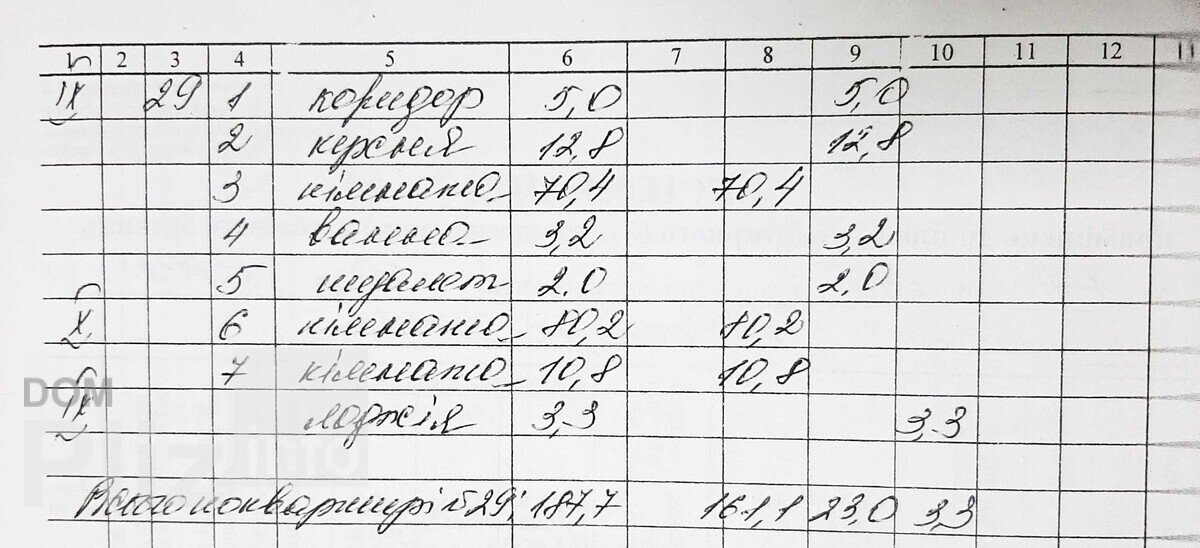 1 2 3 4 5 6 7 8 9 10 11 12
п IX 29 1 коридор 5,0 5,0
2 кухня 12,8 12,8
3 кімната 70,4 70,4
4 ванна 3,2 3,2
5 туалет 2,0 2,0
п X 6 кімната 80,2 80,2
7 кімната 10,8 10,8
п IX лоджія 3,3 3,3
Всього по квартирі №29: 187,7 161,4 23,0 3,3
DOM